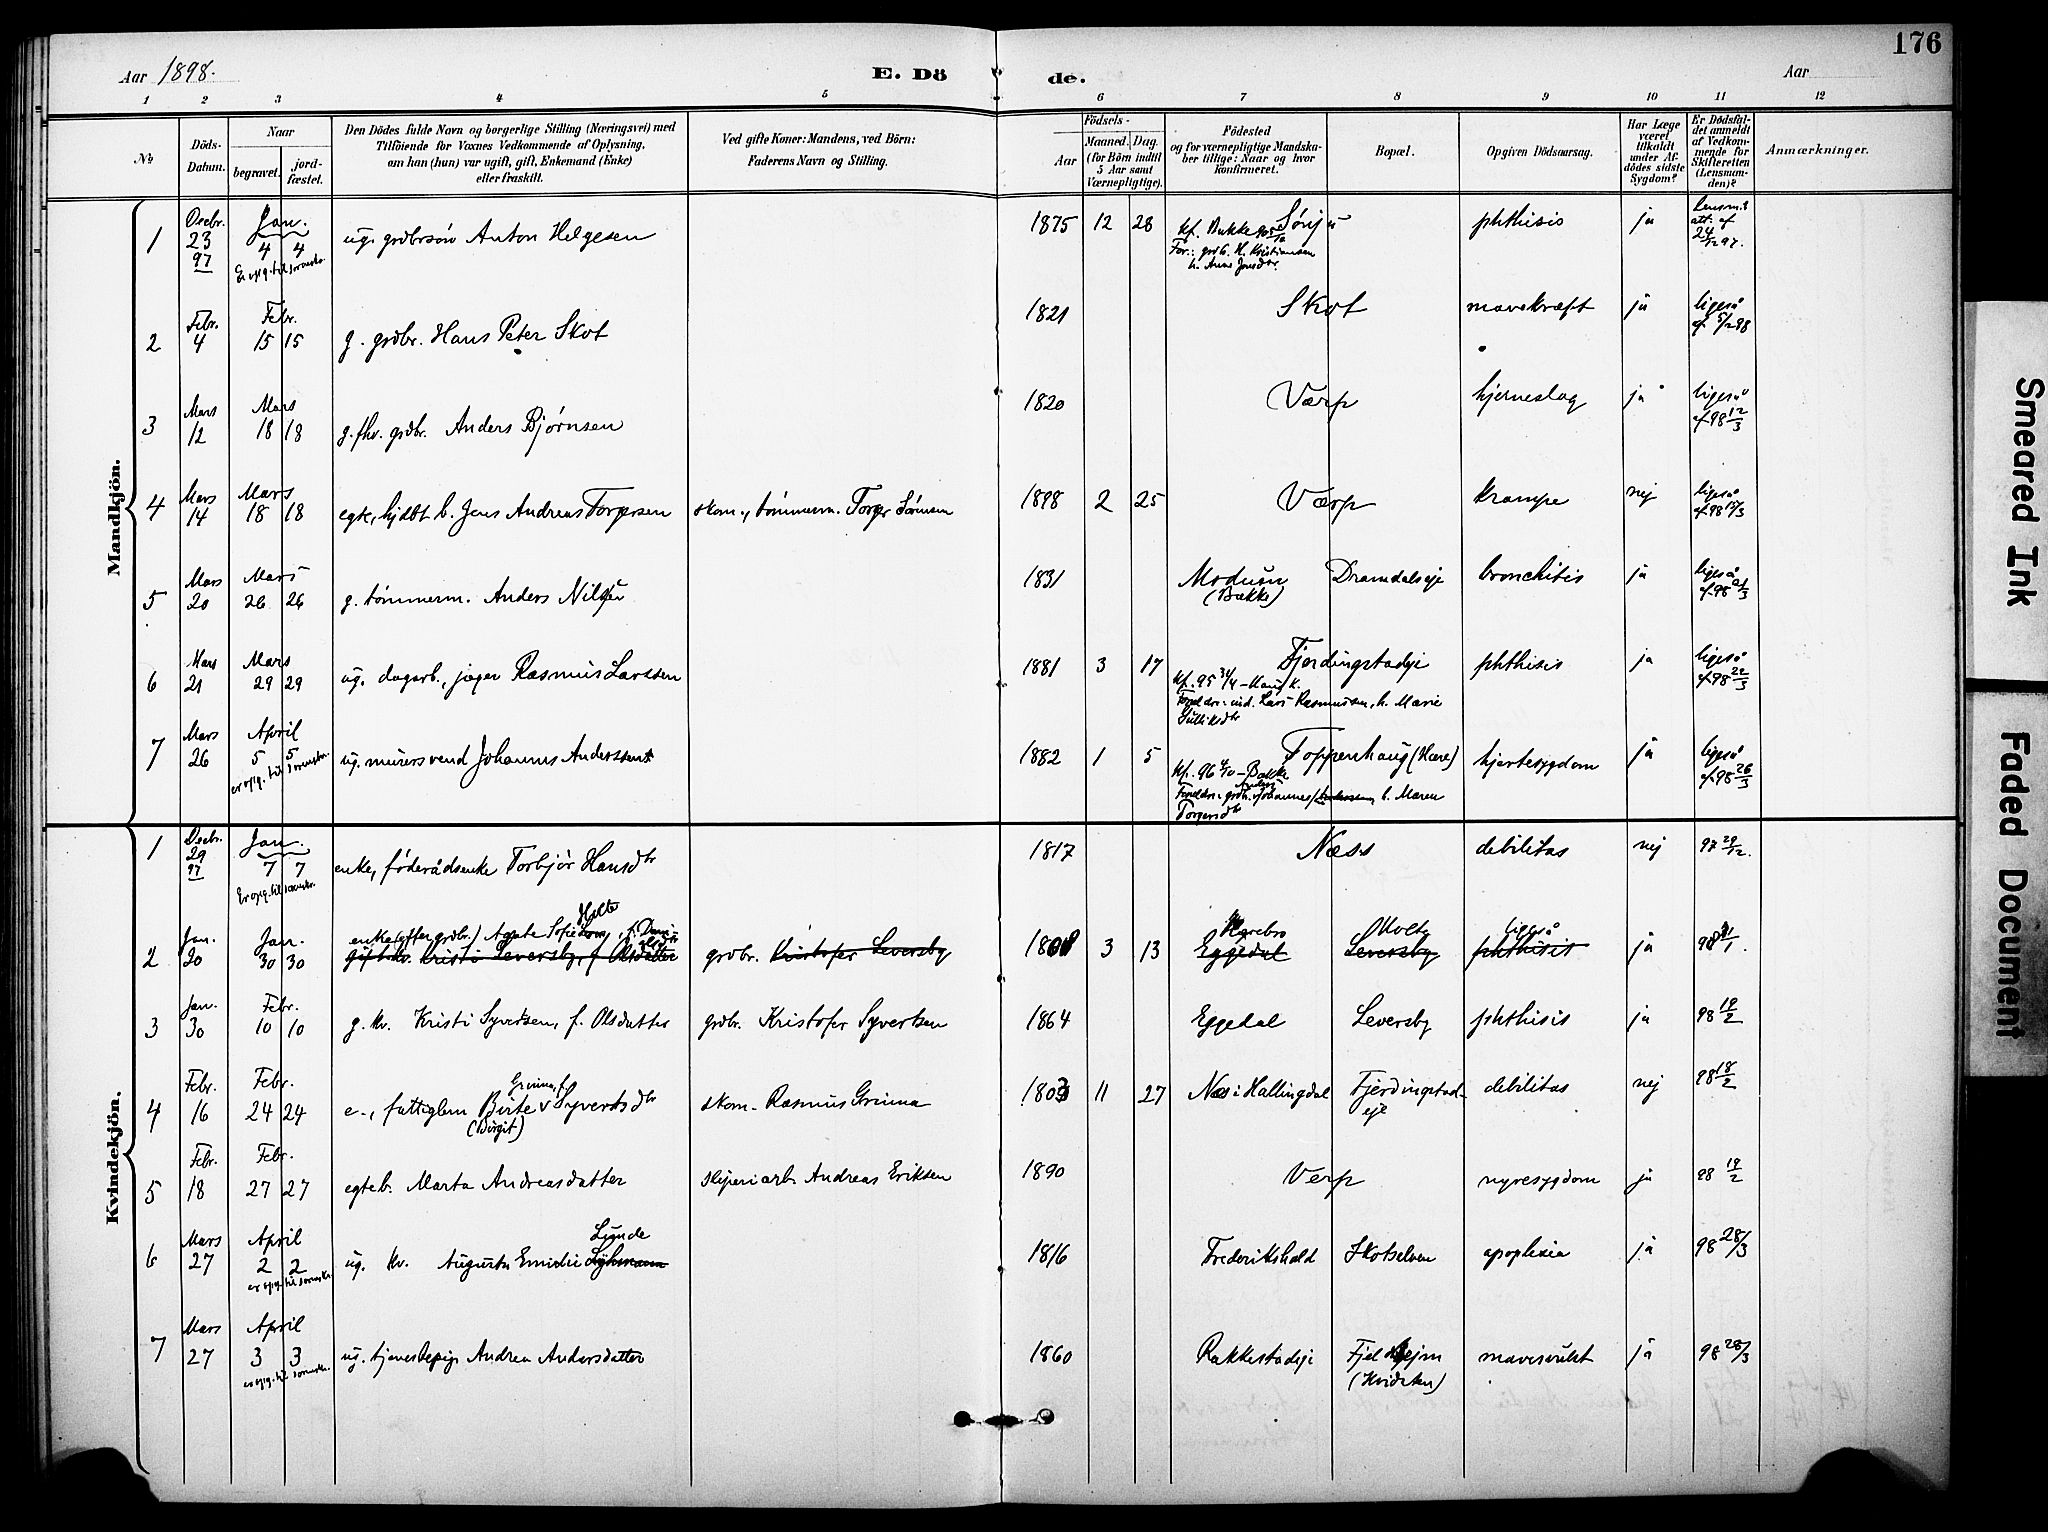 176
Aar 1898.
E. Dö de.
Aar
1 2 3 4 5 6 7 8 9 10 11 12
No
Döds-Datum.
Naar
begravet.
jord-fæstet.
Den Dödes fulde Navn og borgerlige Stilling (Næringsvei) med
Tilföiende for Voxnes Vedkommende af Oplysning,
om han (hun) var ugift, gift, Enkemand (Enke)
eller fraskilt.
Ved gifte Koner: Mandens, ved Börn:
Faderens Navn og Stilling.
Födsels-
Aar
Maaned. Dag.
(for Börn indtil
5 Aar samt
Værnepligtige).
Födested
og for værnepligtige Mandska-
ber tillige: Naar og hvor
konfirmeret.
Bopæl.
Opgiven Dödsaarsag.
Har Læge
været
tilkaldt
under Af-
dödes sidste
Sygdom?
Er Dödsfal-
det anmeldt
af Vedkom-
mende for
Skifteretten
(Lensman-
den)?
Anmærkninger.
Mandkjön.
1 Decbr. 23 97 Jan. 4 4 ug. grdbrsøn Anton Helgesen 1875 12 28 kf. Bakke Sørije phthisis ja Lensm.s att. af 24/12 97.
For.: grdb. H. Kristiansen
h. Anne Jonsdtr.
2 Febr. 4 Febr. 15 15 g. grdbr. Hans Peter Skot 1821 Skot mavekræft ja ligeså af 5/2 98
3 Mars 12 Mars 18 18 g. fhv. grdbr. Anders Bjørnsen 1820 Værp hjerneslag ja ligeså af 98 12/3
4 Mars 14 Mars 18 18 egte, hjdbt b. Jens Andreas Torgersen skom., tømmerm. Torger Sørensen 1898 2 25 Værp krampe nej ligeså af 98
5 Mars 20 Mars 26 26 g. tømmerm. Anders Nilsen 1831 Modum (Bakke) Dramdalseje bronchitis ja ligeså af 98 21/3
6 Mars 21 Mars 29 29 ug. dagarb., jæger Rasmus Larssen 1881 3 17 Fjerdingstadeje phthisis ja ligeså af 98 22/3
Kf. 95 – Haug k.
Foreldre: ind. Lars Rasmussen, h. Marie
Gulliksdtr
7 Mars 26 April 5 5 ug. murersvend Johannes Anderssen 1882 1 5 Toppenhaug (Hære) hjertesygdom ja ligeså af 98 26/3
Kf. 96 4/10 – Bakke
Foreldre: grdb. Anders Johannes, h. Maren
Torgersdtr
Kvindekjön.
1 Decbr. 29 97 Jan. 7 7 enke, føderådsenke Torbjør Hansdtr 1817 Næss debilitas nej 97 29/12.
2 Jan. 20 Jan. 30 30 enke (efter grdbr.) Agnte Sofie Holte gift kv. Kristi Leversby, f. Olsdatter grdbr. Kristofer Leversby 1808 3 13 Eggedal Leversby ligeså phthisis ja 98 21/1.
3 Jan. 30 Febr. 10 10 g. kv. Kristi Syvertsen, f. Olsdatter grdbr. Kristofer Syvertsen 1864 Eggedal Leversby phthisis ja 98
4 Febr. 16 Febr. 24 24 e., fattiglem Birte Grima, f. Syvertsdtr (Birgit) skom. Rasmus Grima 1803 11 27 Næs i Hallingdal Fjerdingstad-eje debilitas nej 98 18/2
5 Febr. 18 Febr. 27 27 egteb. Marta Andreasdatter sliperiarb. Andreas Eriksen 1890 Verp nyresygdom ja 98 19/2
6 Mars 27 April 2 2 ug. kv. Augusta Emilie Lunde 1816 Frederikshald Skotselven apoplexia ja 98 28/3
7 Mars 27 April 3 3 ug. tjenestepige Andrea Andersdatter 1860 Rakkestadeje Fjelhejm mavesvulst ja 98 28/3
Smeared Ink
Faded Document